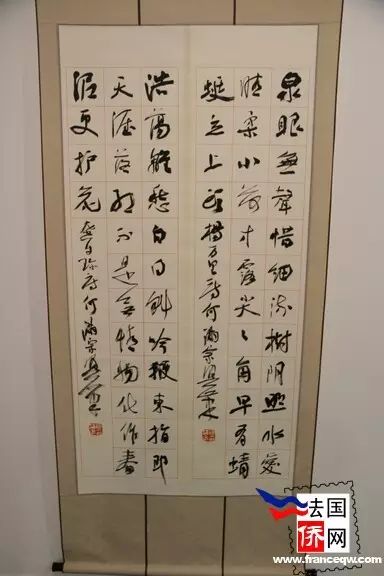 泉眼無聲惜細流樹陰照水愛
晴柔小荷才露尖々角早有蜻
蜓立上頭 楊万里詩何满宗
浩蕩離愁白日斜吟鞭東指即
天涯落紅不是無情物化作春
泥更护花 龔自珍詩何满宗
法国
侨网
www.franceqw.com